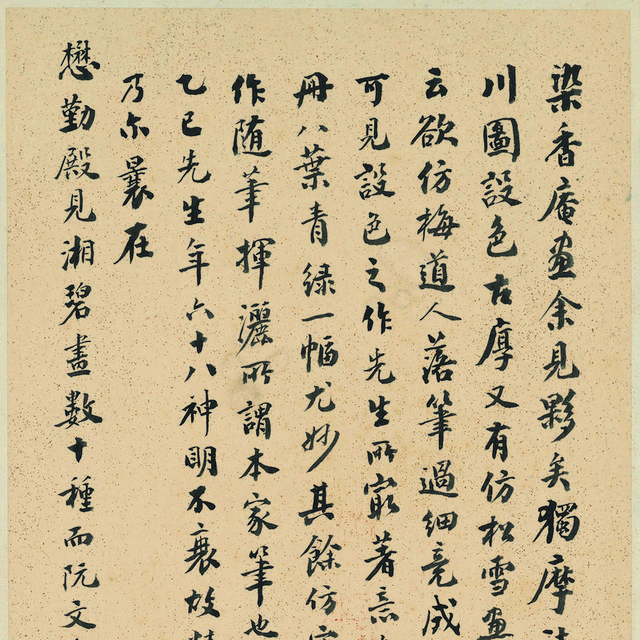 染香庵畫余見夥矣獨摩
川圖設色古厚又有仿松雪畫
云欲仿梅道人落筆過細竟成
可見設色之作先生所最著意
冊八葉青綠一幅尤妙其餘仿宋
作隨筆揮灑所謂本家筆也
乙巳先生年六十八神明不衰故
乃尔曩在
懋勤殿見湘碧畫數十種而阮文